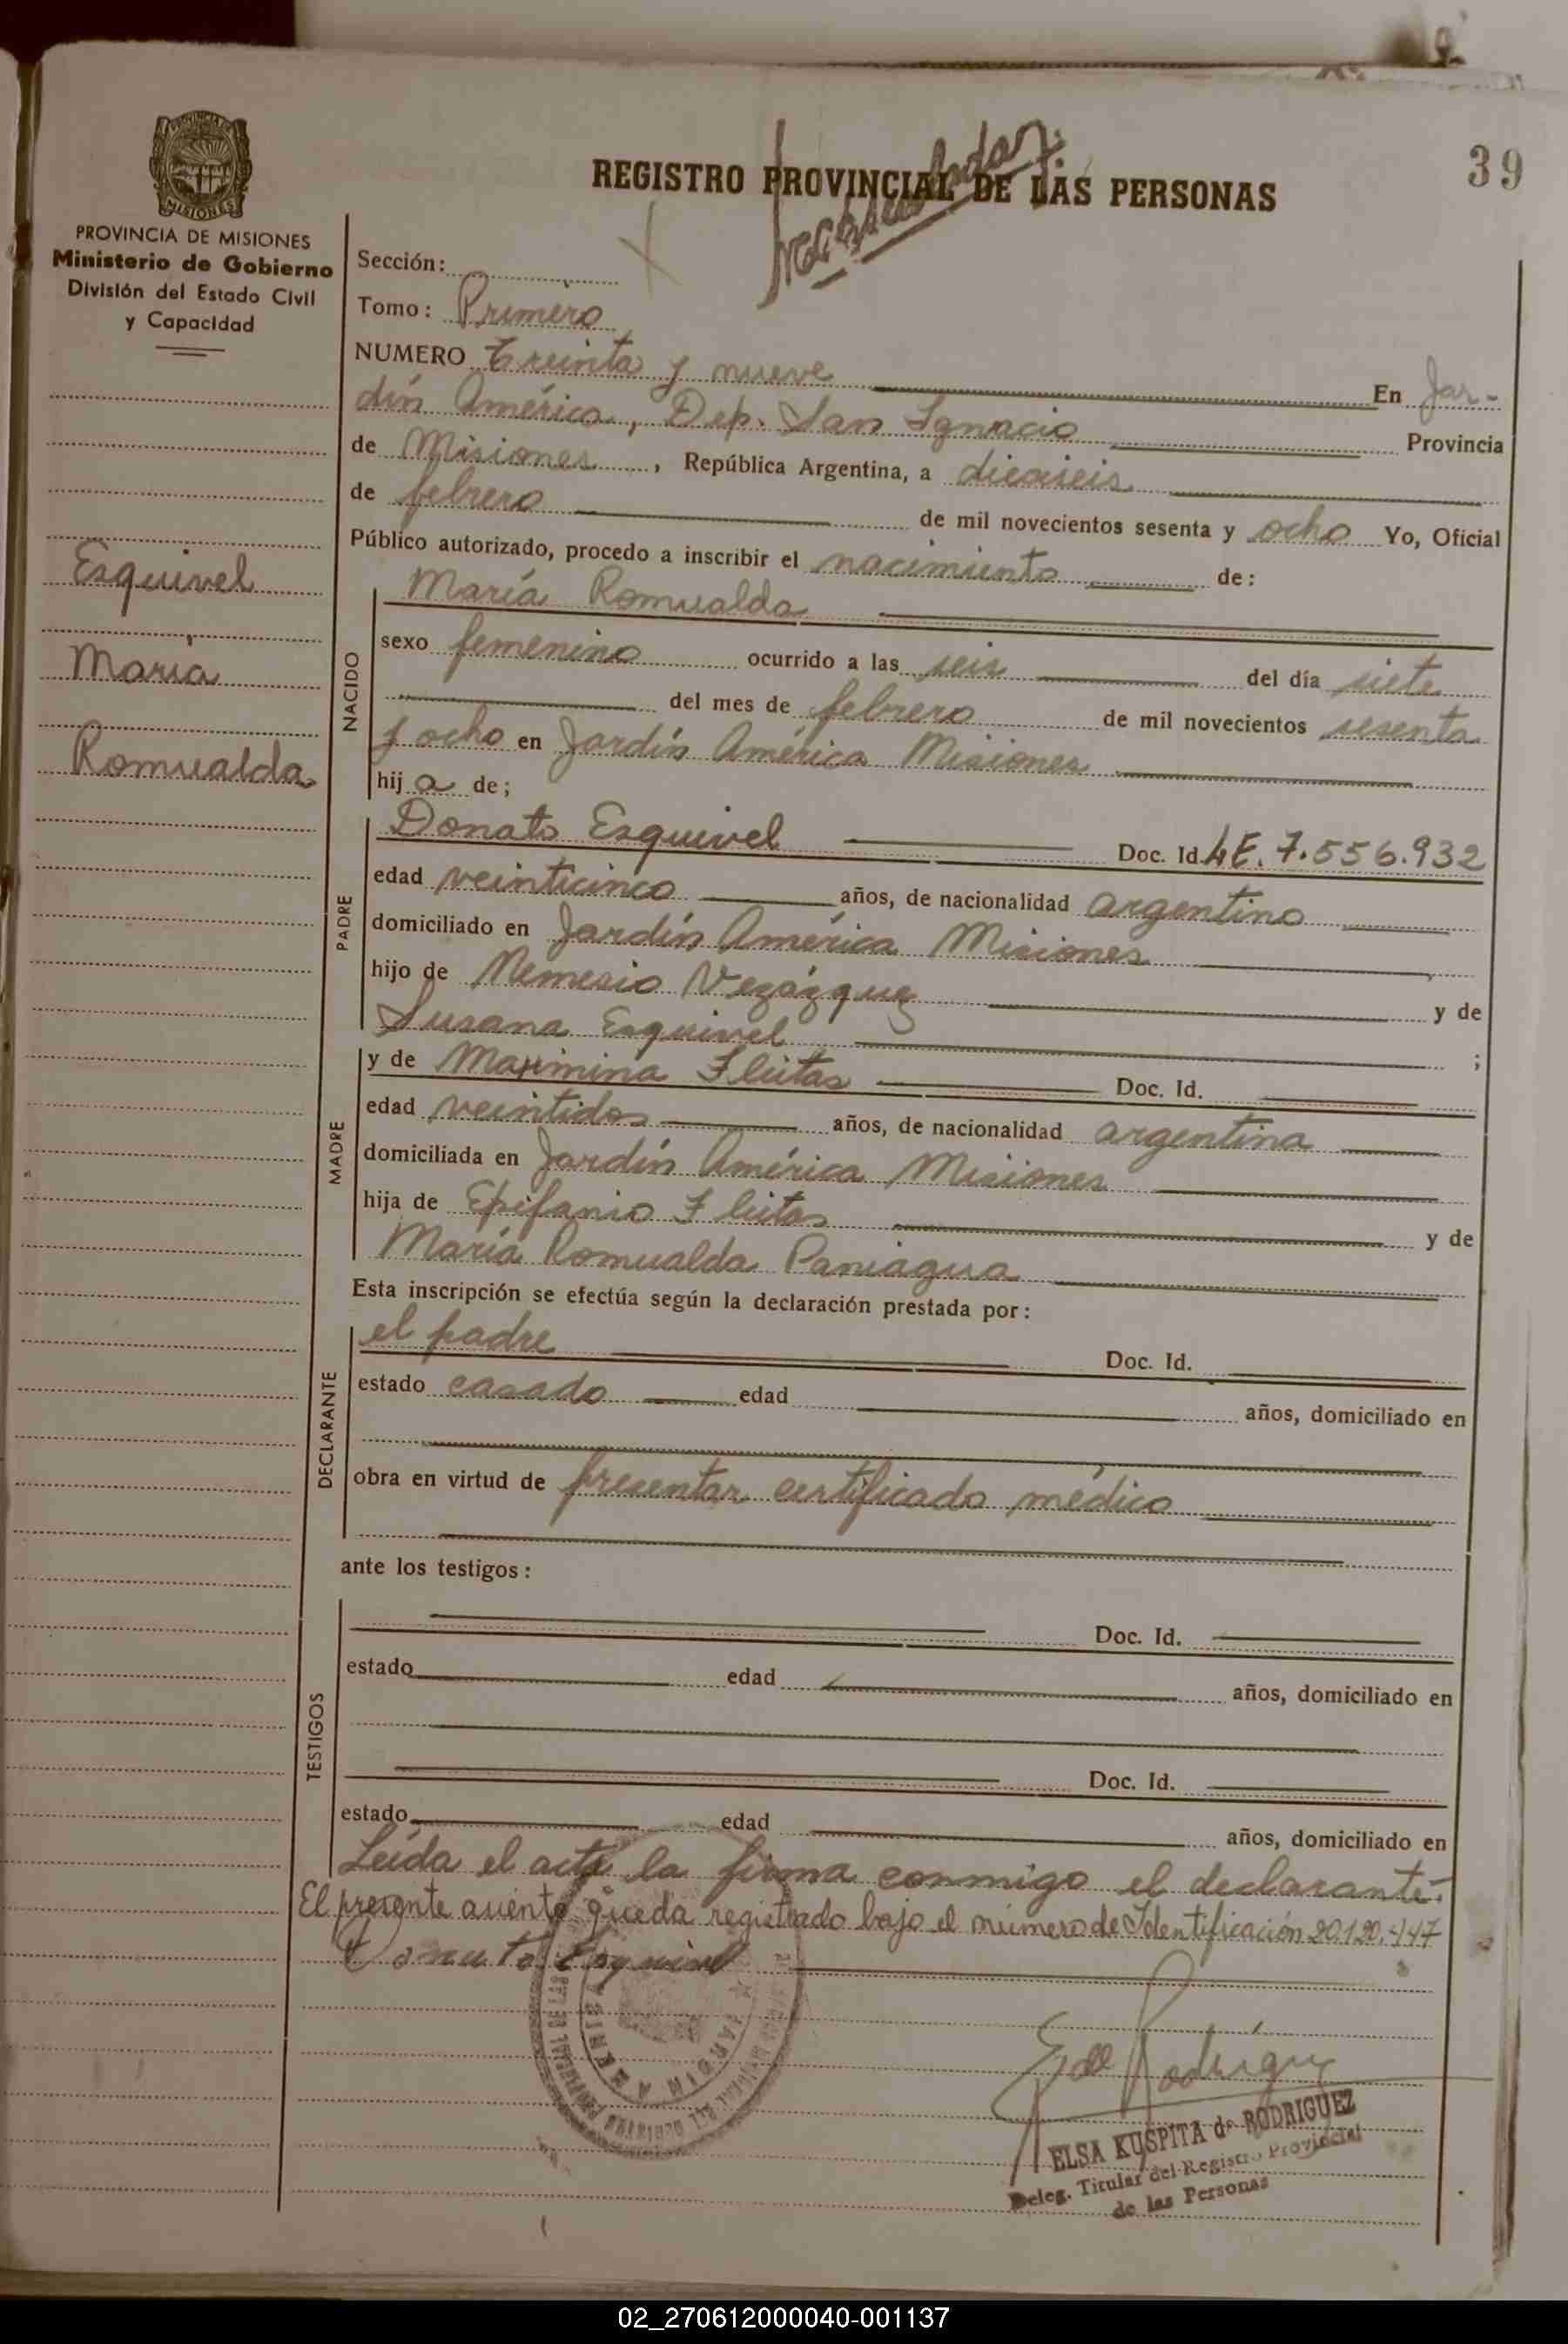 39
REGISTRO PROVINCIAL DE LAS PERSONAS
PROVINCIA DE MISIONES
Ministerio de Gobierno
División del Estado Civil
y Capacidad
MISIONES
Esquivel
María
Romualda
Sección:
Tomo: Primero
NUMERO Treinta y nueve En Jar-
dín América, Dep. San Ignacio Provincia
de Misiones, República Argentina, a dieciseis
de febrero de mil novecientos sesenta y ocho Yo, Oficial
Público autorizado, procedo a inscribir el nacimiento de:
NACIDO
María Romualda
sexo femenino ocurrido a las seis del día siete
del mes de febrero de mil novecientos sesenta
y ocho en Jardín América Misiones
hij a de;
PADRE
Donato Esquivel Doc. Id. LE. 7.556.932
edad veinticinco años, de nacionalidad argentino
domiciliado en Jardín América Misiones
hijo de Nemesio Vezázquez y de
Susana Esquivel ;
MADRE
y de Maximina Fleitas Doc. Id.
edad veintidos años, de nacionalidad argentina
domiciliada en Jardín América Misiones
hija de Epifanio Fleitas y de
María Romualda Paniagua
Esta inscripción se efectúa según la declaración prestada por:
DECLARANTE
el padre Doc. Id.
estado casado edad años, domiciliado en
obra en virtud de presentar certificado médico
ante los testigos:
TESTIGOS
Doc. Id.
estado edad años, domiciliado en
Doc. Id.
estado edad años, domiciliado en
Leída el acta la firma conmigo el declarante.
El presente asiento queda registrado bajo el número de Identificación 20.120.447
Donato Esquivel
JARDIN AMERICA
E de Rodríguez
ELSA KUSPITA de RODRIGUEZ
Deleg. Titular del Registro Provincial
de las Personas
02_270612000040-001137